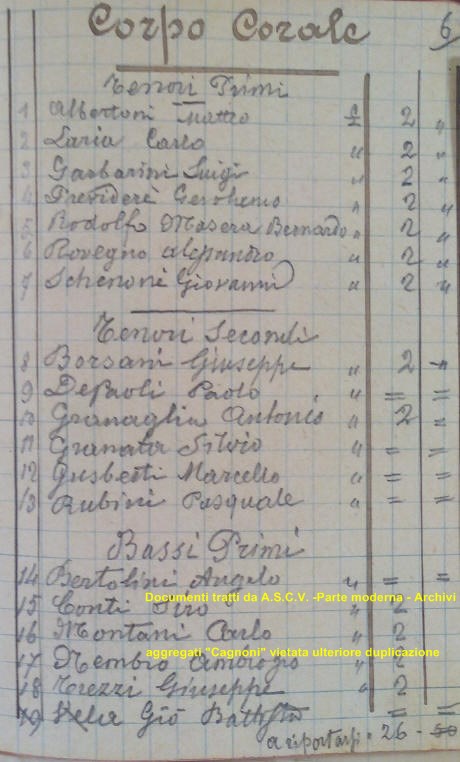 Corpo Corale 6
Tenori Primi
1 Albertoni Matteo £ 2 "
2 Laria Carlo " 2 "
3 Garbarini Luigi " 2 "
4 Previderè " 2 "
5 Rodolfo Masera Bernardo " 2 "
6 Rovegno Alessandro " 2 "
7 Schenone Giovanni " 2 "
Tenori Secondi
8 Borsani Giuseppe " 2 "
9 DePaoli Paolo " = =
10 Granaglia Antonio " 2 =
11 Granata Silvio " = =
12 Gusberti Marcello " = =
13 Rubini Pasquale " = =
Bassi Primi
14 Bertolini Angelo " = =
Documenti tratti da A.S.C.V. -Parte moderna - Archivi
15 Conti Siro " 2
16 Montani Carlo " 2
aggregati "Cagnoni" vietata ulteriore duplicazione
17 Nembro Ambrogio " 2
18 Trezzi Giuseppe " 2
19 Vela Giò Battista = =
a riportarsi = 26 - 50